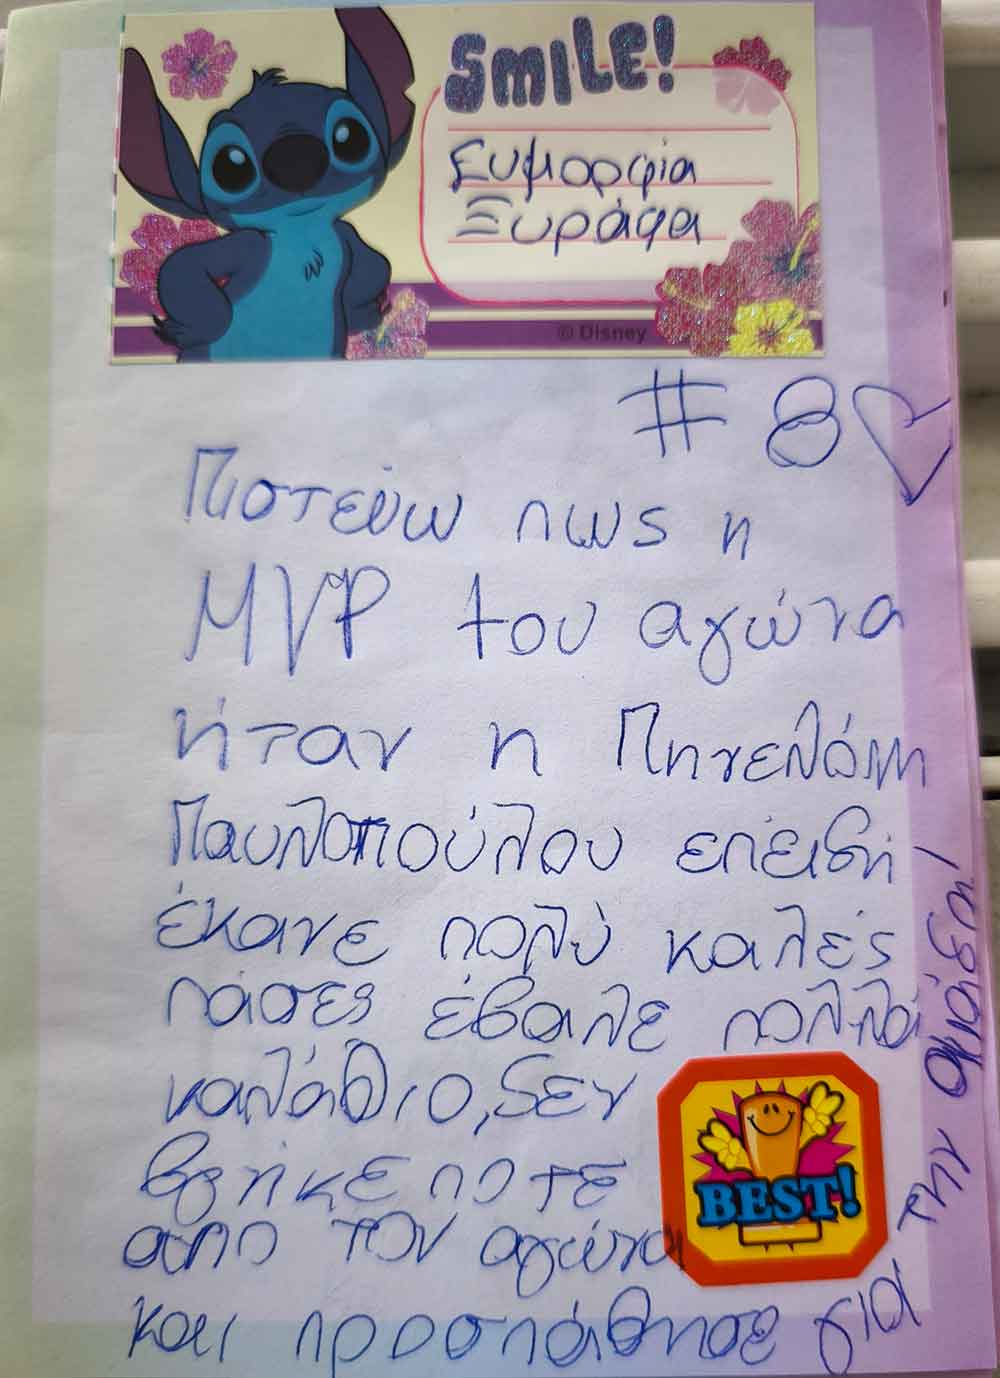 SMILE!
Ευμορφία
Ξυράφα
© Disney
#8
Πιστεύω πως η
MVP του αγώνα
ήταν η Πηνελόπη
Παυλοπούλου επειδή
έκανε πολύ καλές
πάσες έβαλε πολλά
καλάθια, δεν
βγήκε ποτέ
από τον αγώνα
και προσπάθησε για την ομάδα!
BEST!